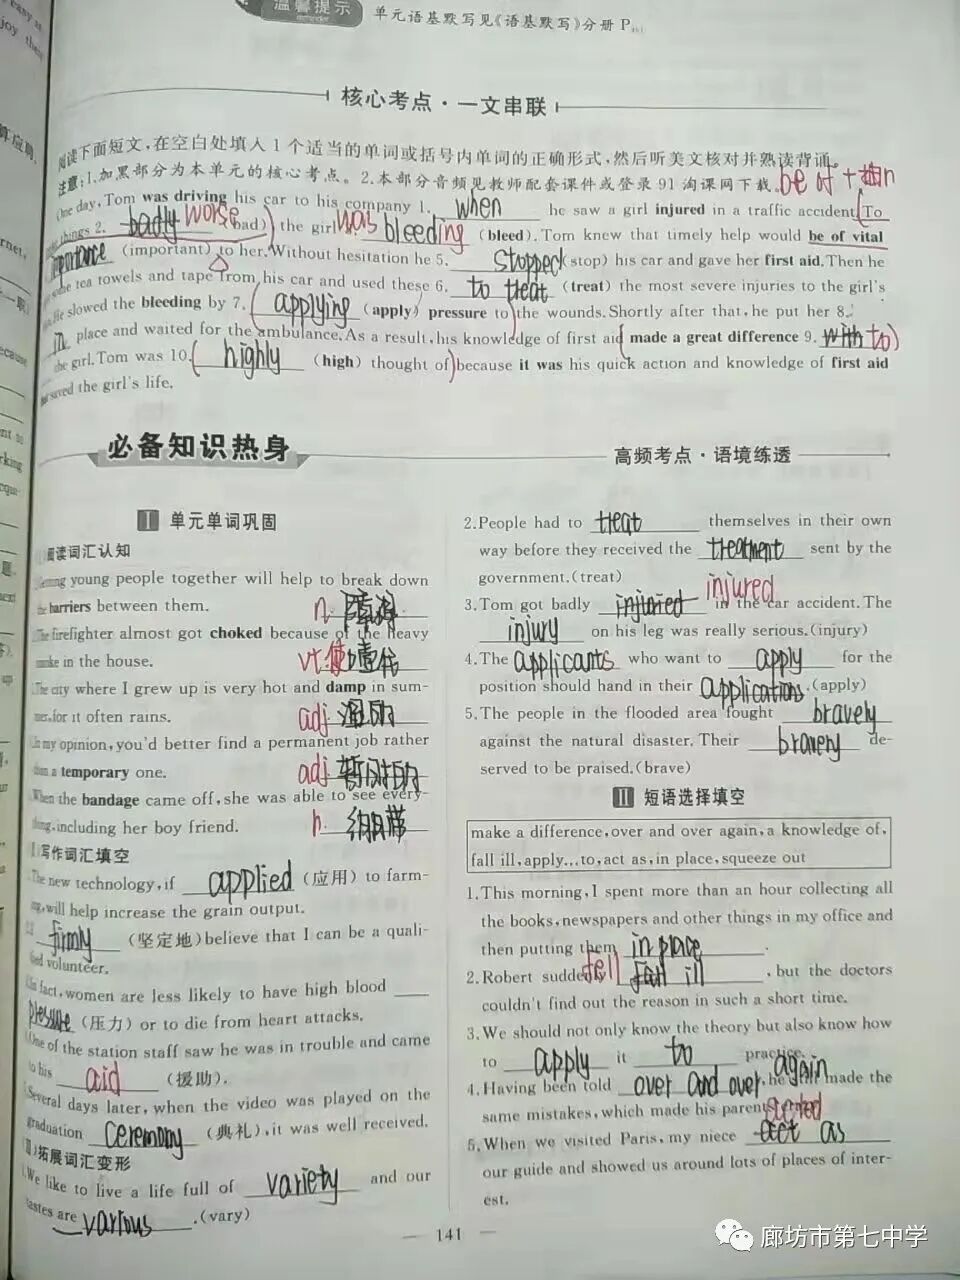 温馨提示
单元语基默写见《语基默写》分册 P
核心考点·一文串联
阅读下面短文,在空白处填入1个适当的单词或括号内单词的正确形式,然后听美文核对并熟读背诵。
注意:1.加黑部分为本单元的核心考点。2.本部分音频见教师配套课件或登录91淘课网下载.
be of + 抽n
One day, Tom was driving his car to his company 1. when he saw a girl injured in a traffic accident. To
things 2. badly worse (bad) the girl was bleeding (bleed). Tom knew that timely help would be of vital
importance (important) to her. Without hesitation he 5. stopped (stop) his car and gave her first aid. Then he
some tea towels and tape from his car and used these 6. to treat (treat) the most severe injuries to the girl's
He slowed the bleeding by 7. applying (apply) pressure to the wounds. Shortly after that, he put her 8.
in place and waited for the ambulance. As a result, his knowledge of first aid made a great difference 9. with to
the girl. Tom was 10. highly (high) thought of because it was his quick action and knowledge of first aid
saved the girl's life.
必备知识热身
高频考点·语境练透
Ⅰ 单元单词巩固
阅读词汇认知
young people together will help to break down
the barriers between them. n. 障碍
The firefighter almost got choked because of the heavy
smoke in the house. vt.使噎住
The city where I grew up is very hot and damp in sum-
mer, for it often rains. adj 湿的
In my opinion, you'd better find a permanent job rather
than a temporary one. adj 暂时的
When the bandage came off, she was able to see every-
thing, including her boy friend. n. 绷带
写作词汇填空
The new technology, if applied (应用) to farm-
ing, will help increase the grain output.
firmly (坚定地) believe that I can be a quali-
fied volunteer.
In fact, women are less likely to have high blood
pressure (压力) or to die from heart attacks.
One of the station staff saw he was in trouble and came
to his aid (援助).
Several days later, when the video was played on the
graduation ceremony (典礼), it was well received.
拓展词汇变形
We like to live a life full of variety and our
tastes are various .(vary)
2.People had to treat themselves in their own
way before they received the treatment sent by the
government.(treat)
3.Tom got badly injuried injured in the car accident. The
injury on his leg was really serious.(injury)
4.The applicants who want to apply for the
position should hand in their applications.(apply)
5.The people in the flooded area fought bravely
against the natural disaster. Their bravery de-
served to be praised.(brave)
Ⅱ 短语选择填空
make a difference, over and over again, a knowledge of,
fall ill, apply...to, act as, in place, squeeze out
1.This morning, I spent more than an hour collecting all
the books, newspapers and other things in my office and
then putting them in place .
2.Robert suddenly fell fall ill , but the doctors
couldn't find out the reason in such a short time.
3.We should not only know the theory but also know how
to apply it to practice.
4.Having been told over and over again, he made the
same mistakes, which made his parents
5.When we visited Paris, my niece acted act as
our guide and showed us around lots of places of inter-
est.
141
廊坊市第七中学